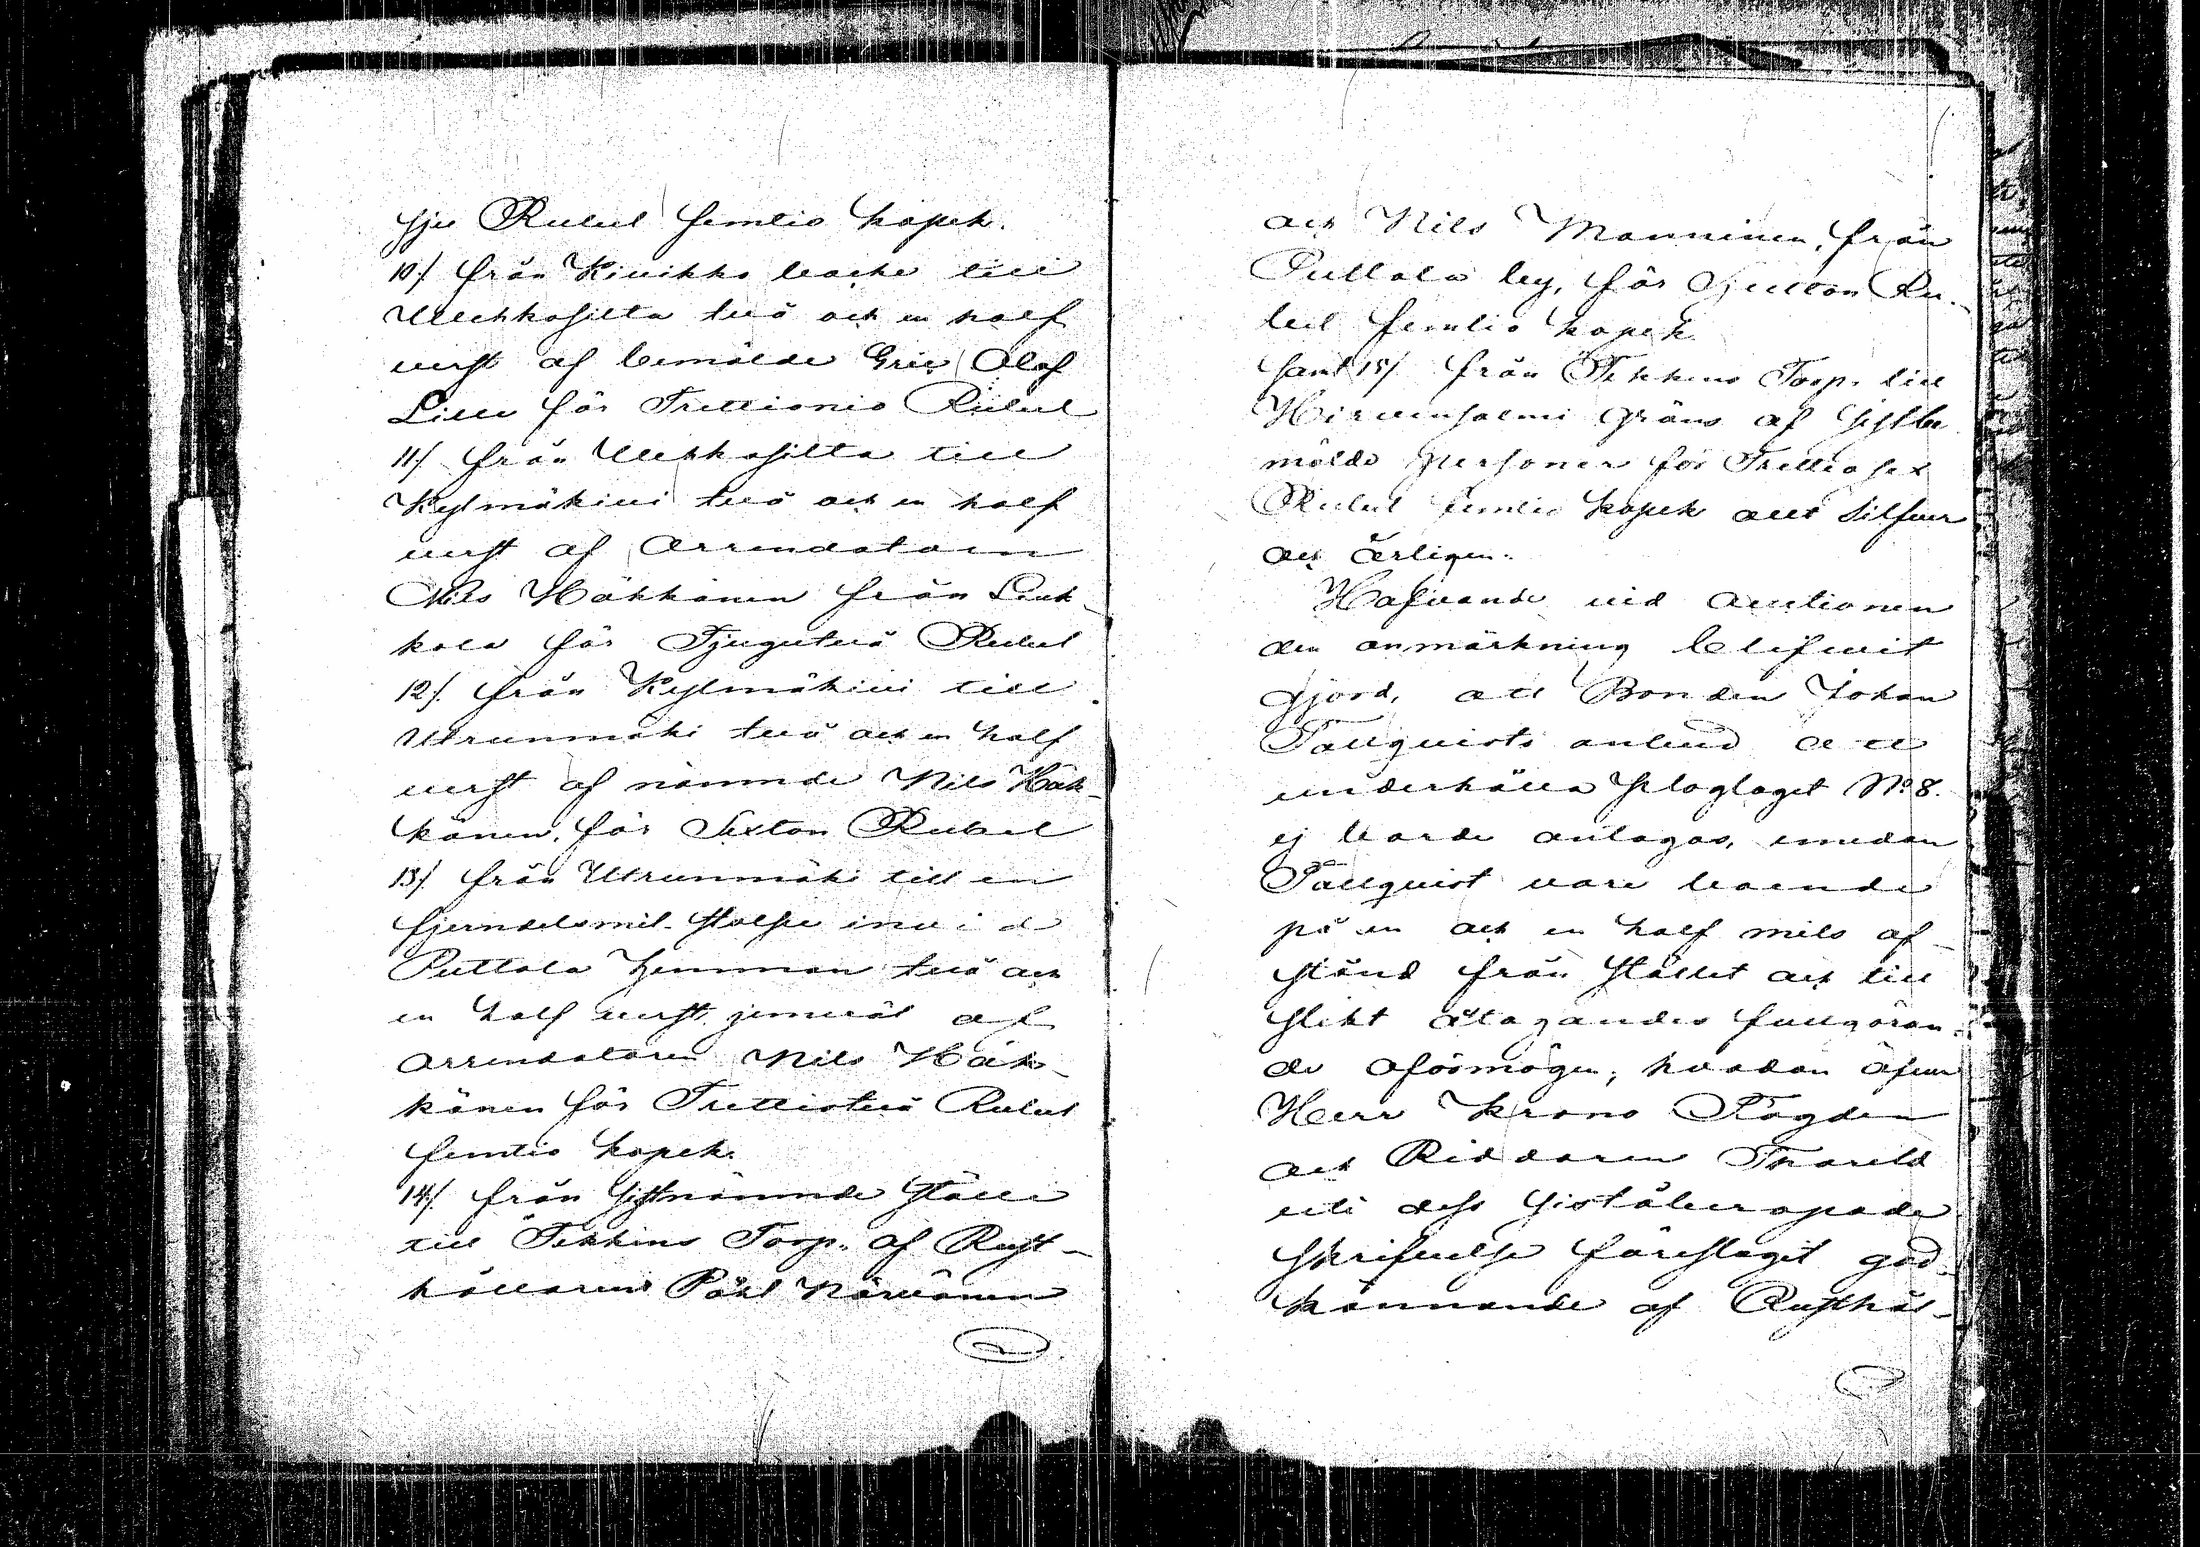 sju Rubel femtio kopek.
10/. från Kivikko backe till
Uuhkasilta två och en half
verst af bemälde Eric Olof
Lille för Trettionio Rubel
11/. från Uuhkasilta till
Kylmäkivi två och en half
verst af Arrendatorn
Nils Häkkänen från Link-
kola för Tjugutvå Rubel
12/. från Kylmäkivi till
Utrunmäki två och en half
verst af nämnde Nils Häk-
känen, för Sexton Rubel
13/. från Utrunmäki till en
fjerndelsmil. stolpe invid
Puttola hemman två och
en half verst jemväl af
arrendatoren Nils Häk-
känen för Trettiotvå Rubel
femtio kopek.
14/. från sistnämnde ställe
till Tekkins Torp. af Rust-
hållaren Påhl Närvänen
och Nils Manninen, från
Puttola by, för Sjutton Ru-
bel femtio kopek.
samt 15/ från Tekkins Torp. till
Hirvensalmi gräns af sistbe
mälde personer för Trettiosex
Rubel femtio kopek allt Silfver
och årligen.
Hafvande vid auctionen
den anmärkning blifvit
gjord, att Bonden Johan
Tallquists anbud att
underhålla ploglaget No 8.
ej borde antagas, emedan
Tallquist vore boende
på en och en half mils af-
stånd från stället och till
slikt åtagandes fullgöran-
de oförmögen; hvadan äfven
Herr Krono Fogden
och Riddaren Thareld
uti dess siståberopade
skrifvelse föreslagit god-
kännande af Rusthål-